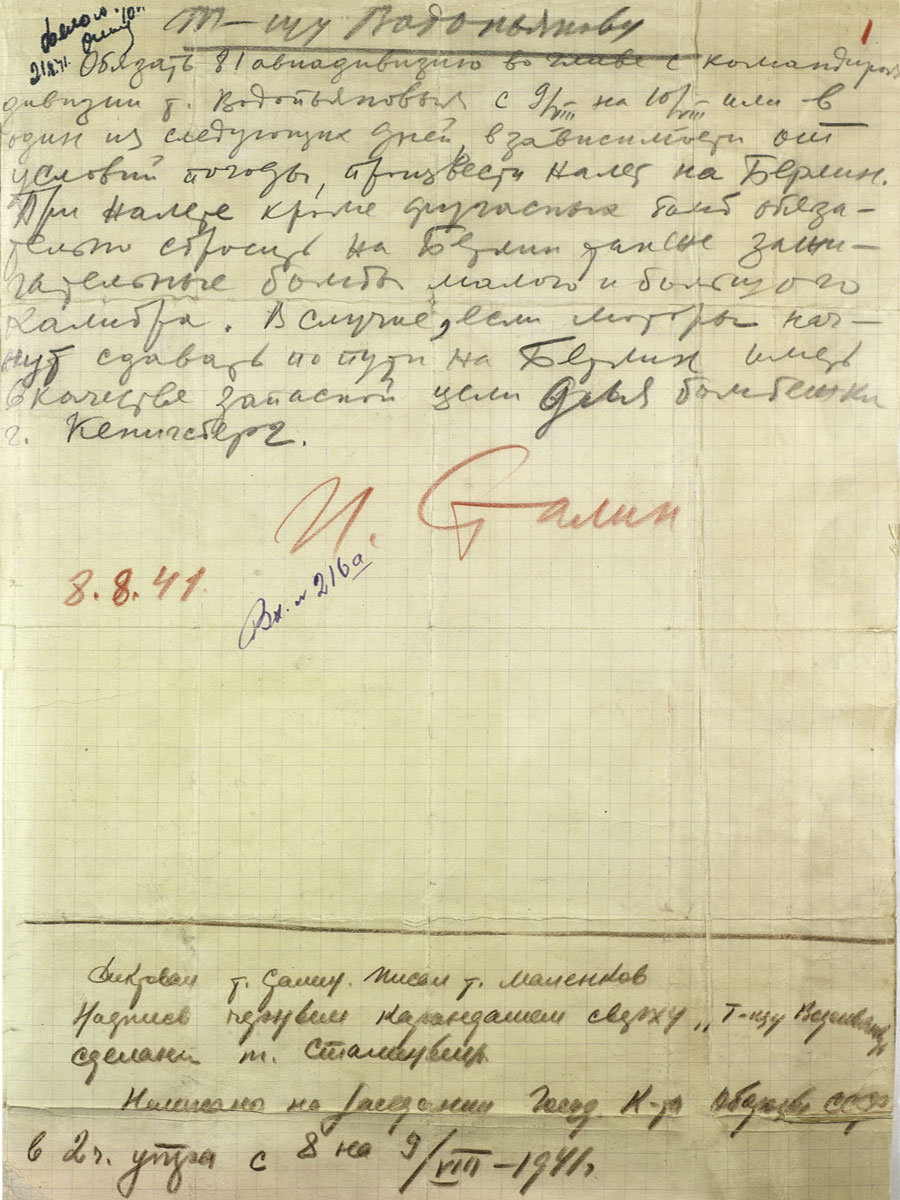 Т-щу Водопьянову
1
21/8.41.
Обязать 81 авиадивизию во главе с командиром
дивизии т. Водопьяновым с 9/VIII на 10/VIII или в
один из следующих дней, в зависимости от
условий погоды, произвести налет на Берлин.
При налете кроме фугасных бомб обяза-
тельно сбросить на Берлин также зажи-
гательные бомбы малого и большого
калибра. В случае, если моторы нач-
нут сдавать по пути на Берлин иметь
в качестве запасной цели для бомбежки
г. Кенигсберг.
И. Сталин
8.8.41.
Вх. № 216а
Диктовал т. Сталин. Писал т. Маленков
Надпись черным карандашем сверху „Т-щу Водопьянову
сделана т. Сталиным
Написано на заседании Госуд. К-та Обороны СССР
в 2 ч. утра с 8 на 9/VIII-1941 г.